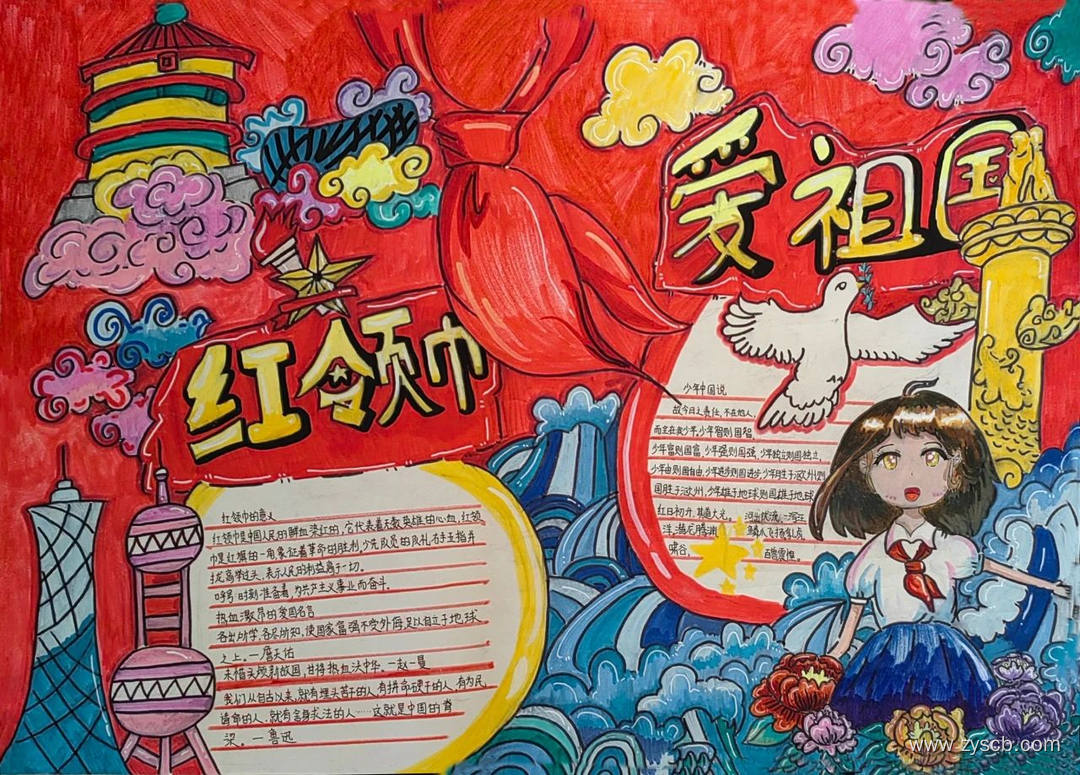 红领巾
爱祖国
红领巾的意义
红领巾是中国人民的鲜血染红的，它代表着无数英雄的心血，红领
巾是红旗的一角，象征着革命的胜利，少先队员的队礼，右手五指并
拢高举过头，表示人民的利益高于一切。
呼号：时刻准备着，为共产主义事业而奋斗。
热血激昂的爱国名言
各出所学，各尽所知，使国家富强不受外侮，足以自立于地球
之上。一詹天佑
未惜头颅新故国，甘将热血沃中华。一赵一曼
我们从自古以来，就有埋头苦干的人，有拼命硬干的人，有为民
请命的人，就有舍身求法的人……这就是中国的脊
梁。一鲁迅
少年中国说
故今日之责任，不在他人，
而全在我少年。少年智则国智，
少年富则国富，少年强则国强，少年独立则国独立，
少年自由则国自由，少年进步则国进步，少年胜于欧州则
国胜于欧州，少年雄于地球则国雄于地球
红日初升，其道大光，河出伏流，一泻汪
洋，潜龙腾渊，鳞爪飞扬，乳虎
啸谷，百兽震惶。
www.zyscb.com